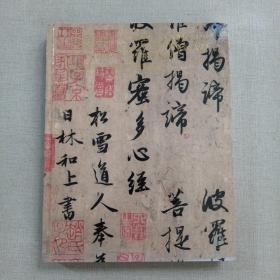 揭諦 波羅
僧揭諦 菩提
波羅蜜多心經
松雪道人奉
日林和上書